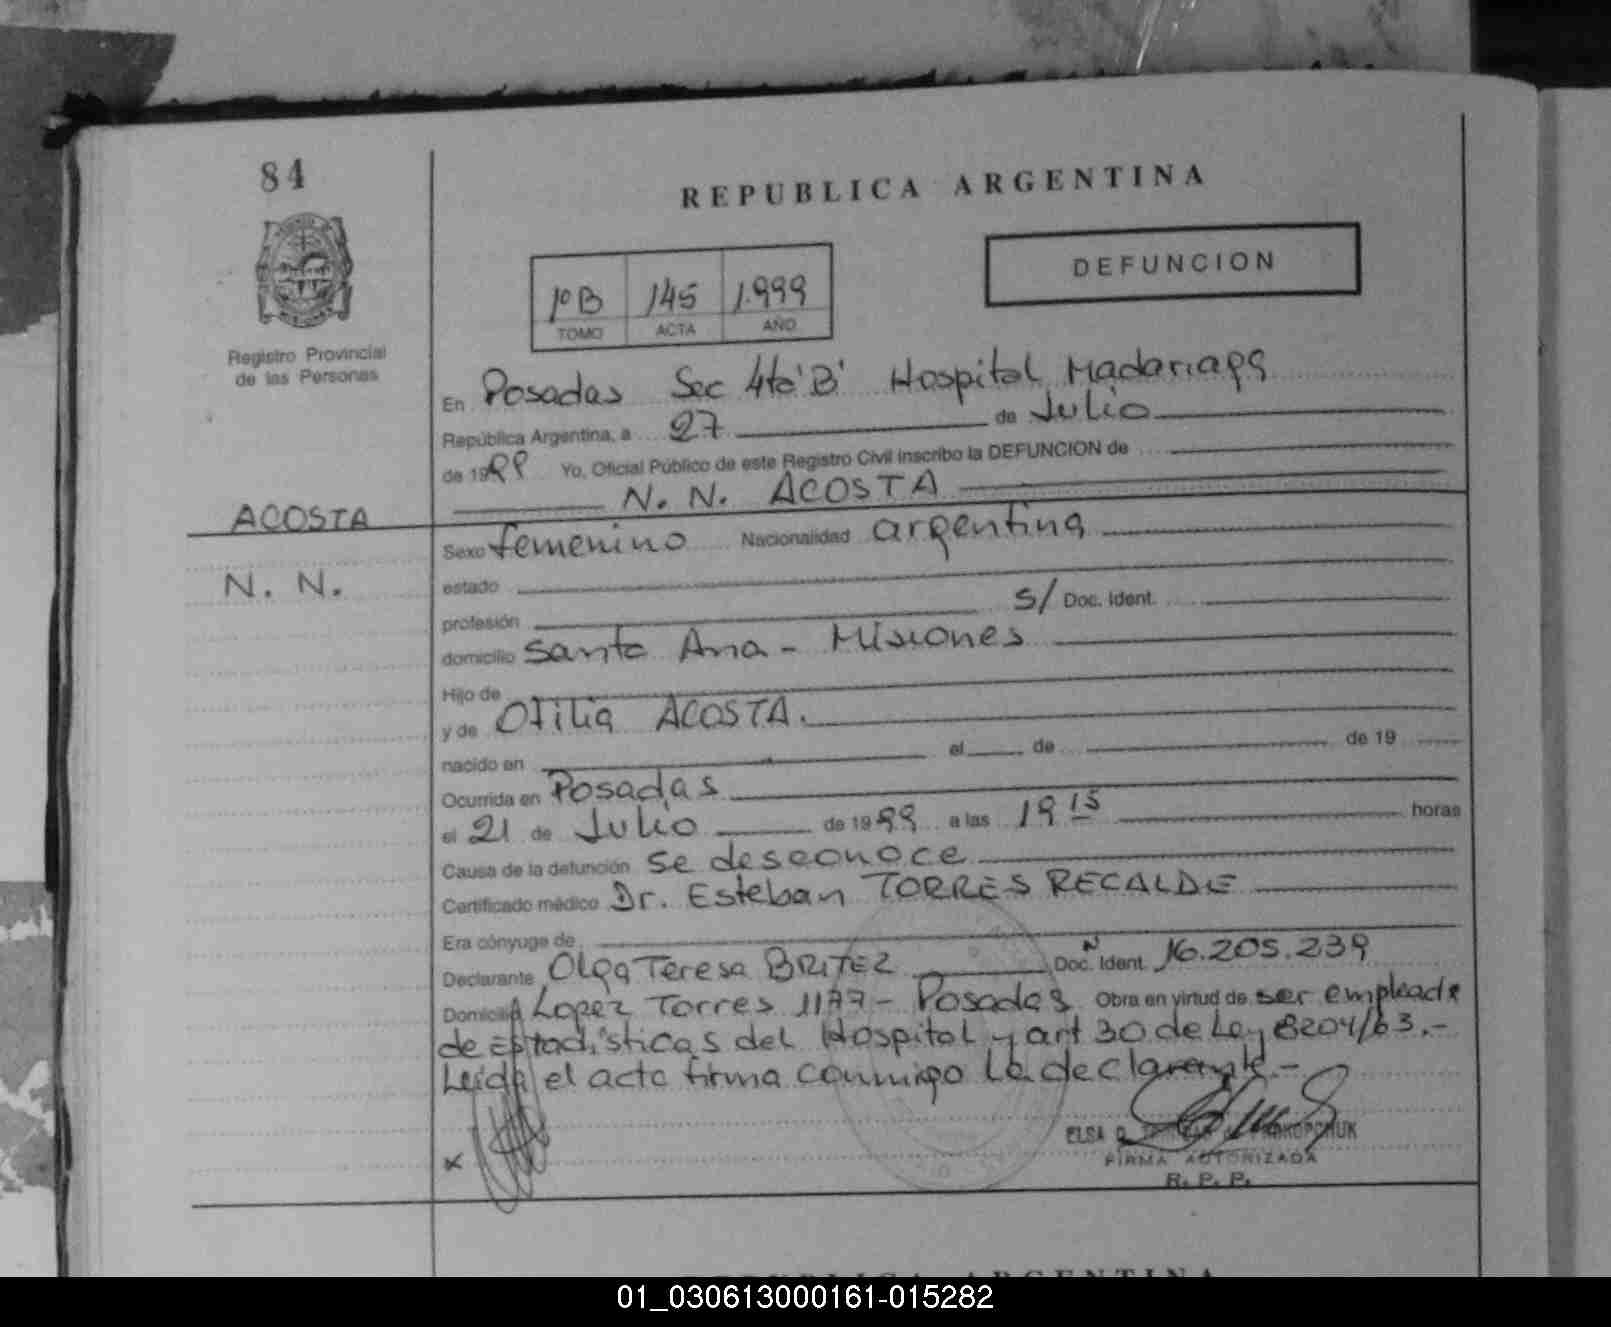 84
REPUBLICA ARGENTINA
DEFUNCION
1º B 145 1.999
TOMO ACTA AÑO
Registro Provincial
de las Personas
En Posadas Sec 4ta 'B' Hospital Madariaga
República Argentina, a 27 de Julio
de 1999 Yo, Oficial Público de este Registro Civil inscribo la DEFUNCION de
N. N. ACOSTA
ACOSTA
N. N.
Sexo femenino Nacionalidad argentina
estado
profesión S/ Doc. Ident.
domicilio Santa Ana - Misiones
Hijo de
y de Otilia ACOSTA.
nacido en el de de 19
Ocurrida en Posadas
el 21 de Julio de 1999 a las 19 15 horas
Causa de la defunción se desconoce
Certificado médico Dr. Esteban TORRES RECALDE
Era cónyuge de
Declarante Olga Teresa BRITEZ Doc. Ident. N 16.205.239
Domicilio Lopez Torres 1177 - Posadas Obra en virtud de ser empleada
de Estadísticas del Hospital y art 30 de Ley 8204/63.-
Leida el acta firma conmigo la declarante.-
x
ELSA PROKOPCHUK
FIRMA AUTORIZADA
R. P. P.
REPUBLICA ARGENTINA
01_030613000161-015282